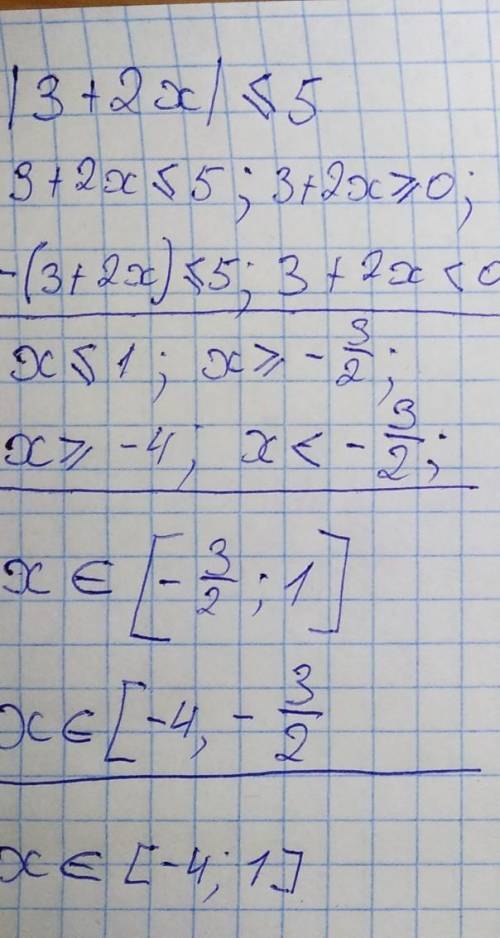 |3+2x|⩽5
3+2x⩽5; 3+2x⩾0;
-(3+2x)⩽5; 3+2x<0
x⩽1; x⩾-3/2;
x⩾-4; x<-3/2;
x∈[-3/2;1]
x∈[-4,-3/2
x∈[-4;1]